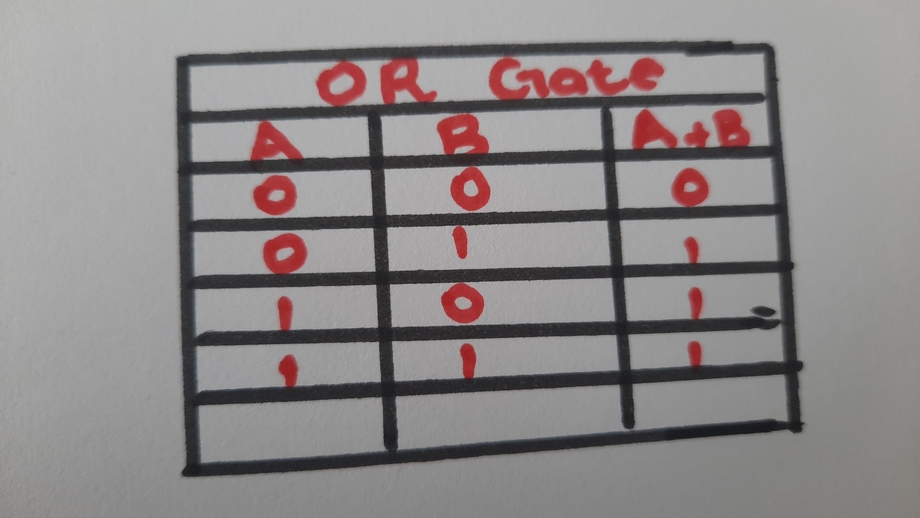 OR Gate
A B A+B
0 0 0
0 1 1
1 0 1
1 1 1